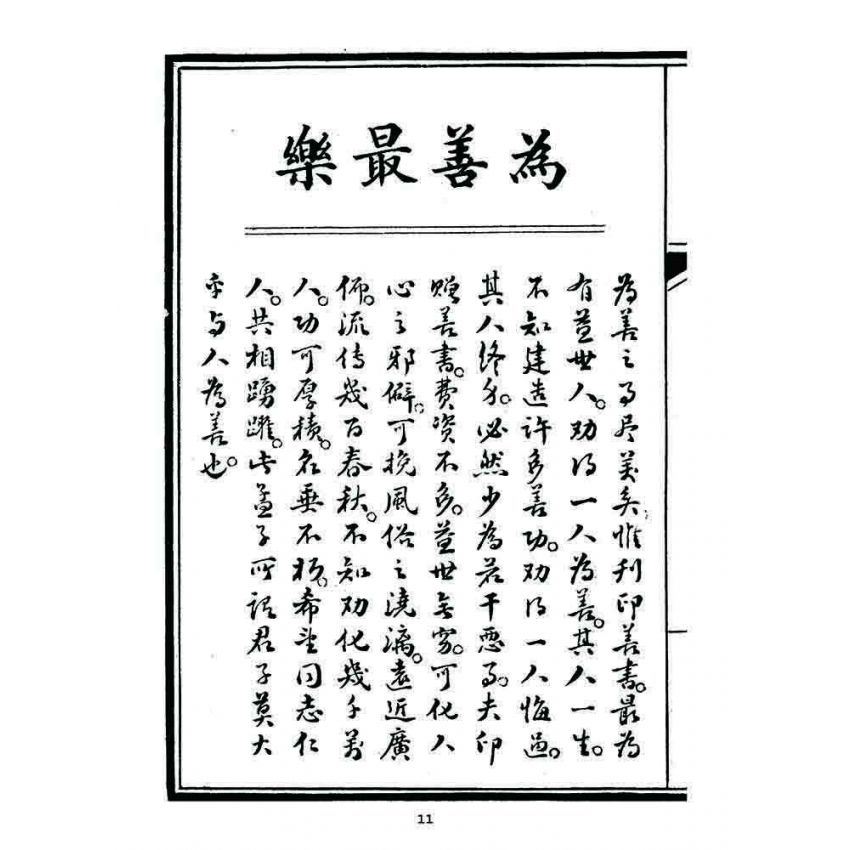 為善最樂
為善之事尽美矣。惟刊印善書。最為
有益世人。劝得一人為善。其人一生。
不知建造許多善功。劝得一人悔過。
其人終身。必然少為若干惡事。夫印
贈善書。費資不多。益世無窮。可化人
心之邪僻。可挽風俗之澆漓。遠近廣
佈。流傳幾百春秋。不知劝化幾千萬
人。功可厚積。名垂不朽。希望同志仁
人。共相踴躍。此孟子所謂君子莫大
乎与人為善也。
11